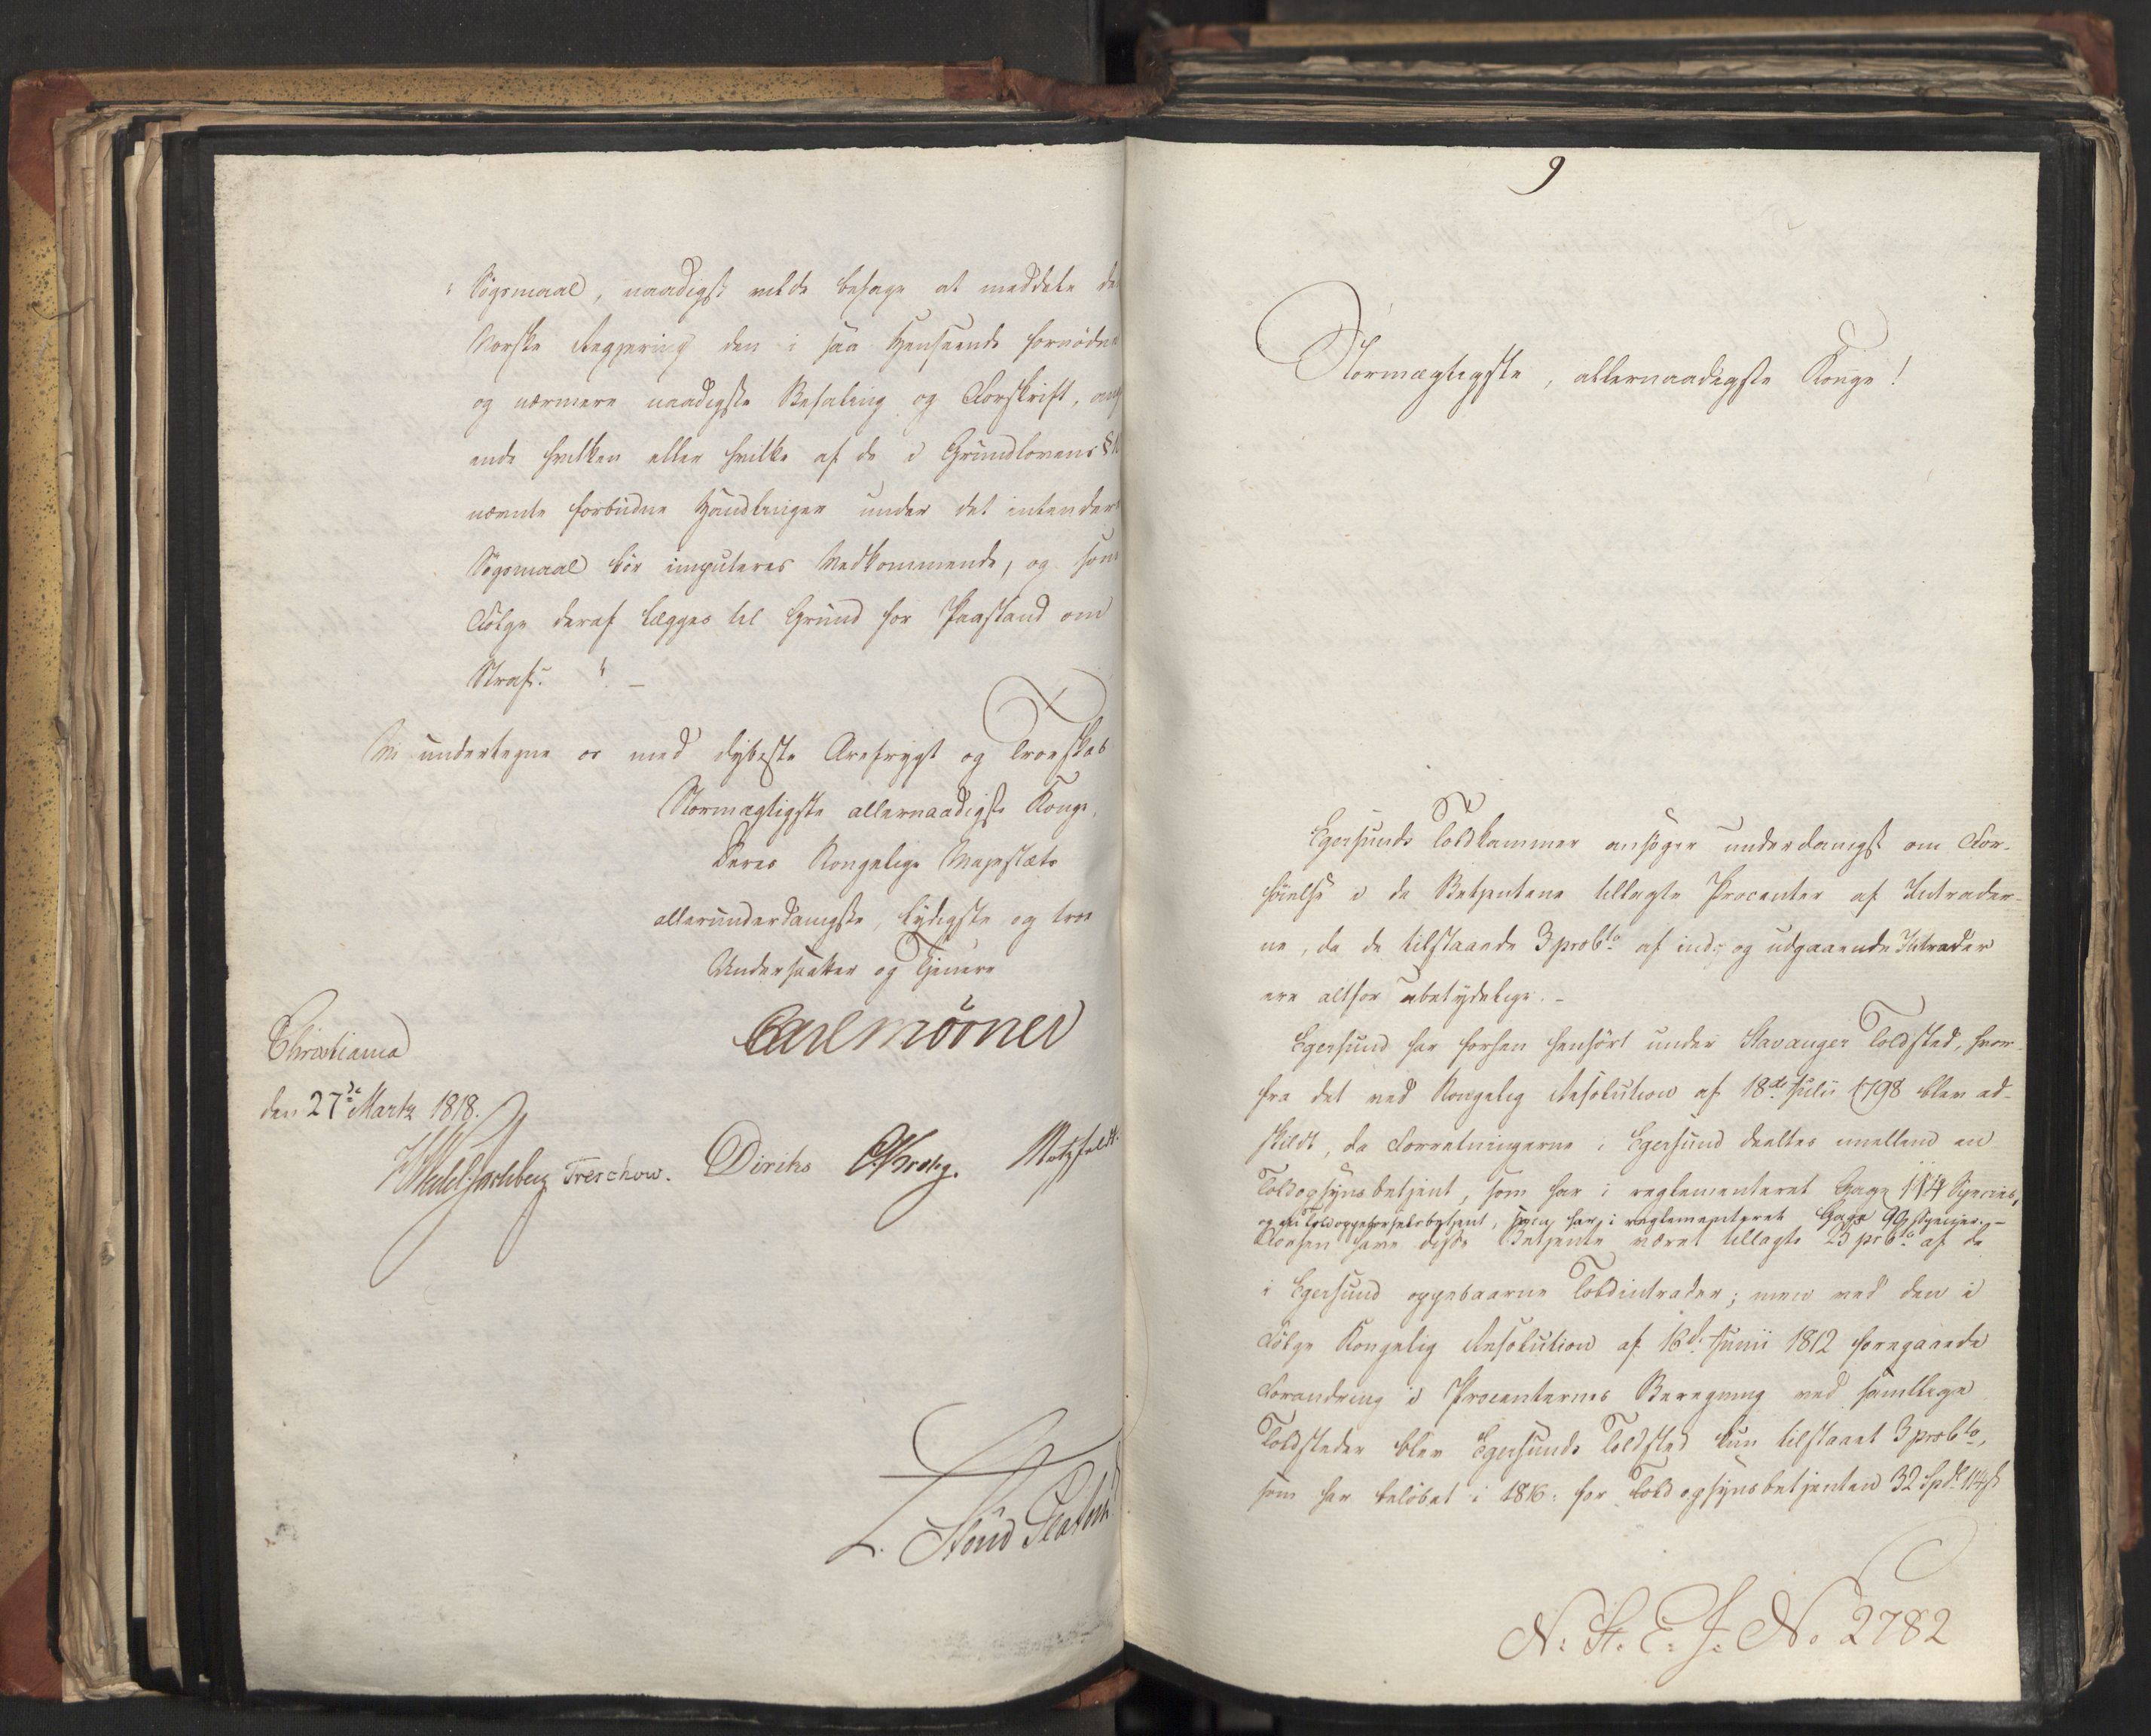 "Søgsmaal, naadigst vilde behage at meddele de
Norske Regjering den i saa Henseende fornødne
og nærmere naadigste Befaling og Forskrift, ang
ende hvilken eller hvilke af de i Grundlovens §
nævnte forbudne Handlinger under det intender
Søgsmaal bør imputeres Vedkommende, og som
Følge deraf lægges til Grund for Paastand om
Straf." –
Vi undertegne os med dybeste Ærefrygt og Troeskab
Stormægtigste allernaadigste Konge,
Deres Kongelige Majestæts
allerunderdanigste, lydigste og troe
Undersaatter og Tjenere
Christiania
den 27de Martz 1818.
Carl Mörner
Wedel-Jarlsberg Treschow. Diriks Krohg. Motzfeldt.
L. Stoud Platou
9
Stormægtigste, allernaadigste Konge!
Egersunds Toldkammer ansøger underdanigst om For-
høielse i de Betjentene tillagte Procenter af Intrader-
ne, da de tilstaaede 3 proCto af ind- og udgaaende Intrader
ere altfor ubetydelige. –
Egersund har forhen henhørt under Stavanger Toldsted, hvor-
fra det ved Kongelig Resolution af 18de Julii 1798 blev ad-
skildt, da Forretningerne i Egersund deeltes imellem en
Toldopsynsbetjent, som har i reglementeret Gage 114 Species,
og en Toldoppebørselsbetjent, som har i reglementeret Gage 90 Species. –
Forhen have disse Betjente været tillagte 25 prCto af de
i Egersund oppebaarne Toldintrader; men ved den i
Følge Kongelig Resolution af 16de Junii 1812 foregaaede
Forandring i Procenternes Beregning ved samtlige
Toldsteder blev Egersunds Toldsted kun tilstaaet 3 proCto,
som har beløbet i 1816: for Toldopsynsbetjenten 32 Spd 114 s
N: St. E: J: No. 2782